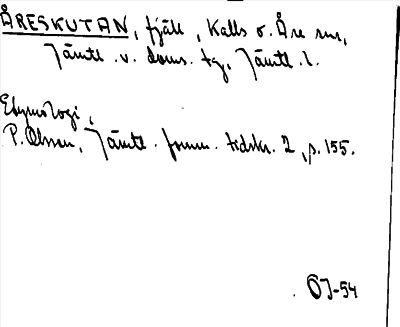 ÅRESKUTAN, fjäll, Kalls o. Åre snr,
Jämtl. v. doms. tg, Jämtl. l.
Etymologi,
P. Olsson, Jämtl. fornm. tidskr. 2, p. 155.
ÖJ-54